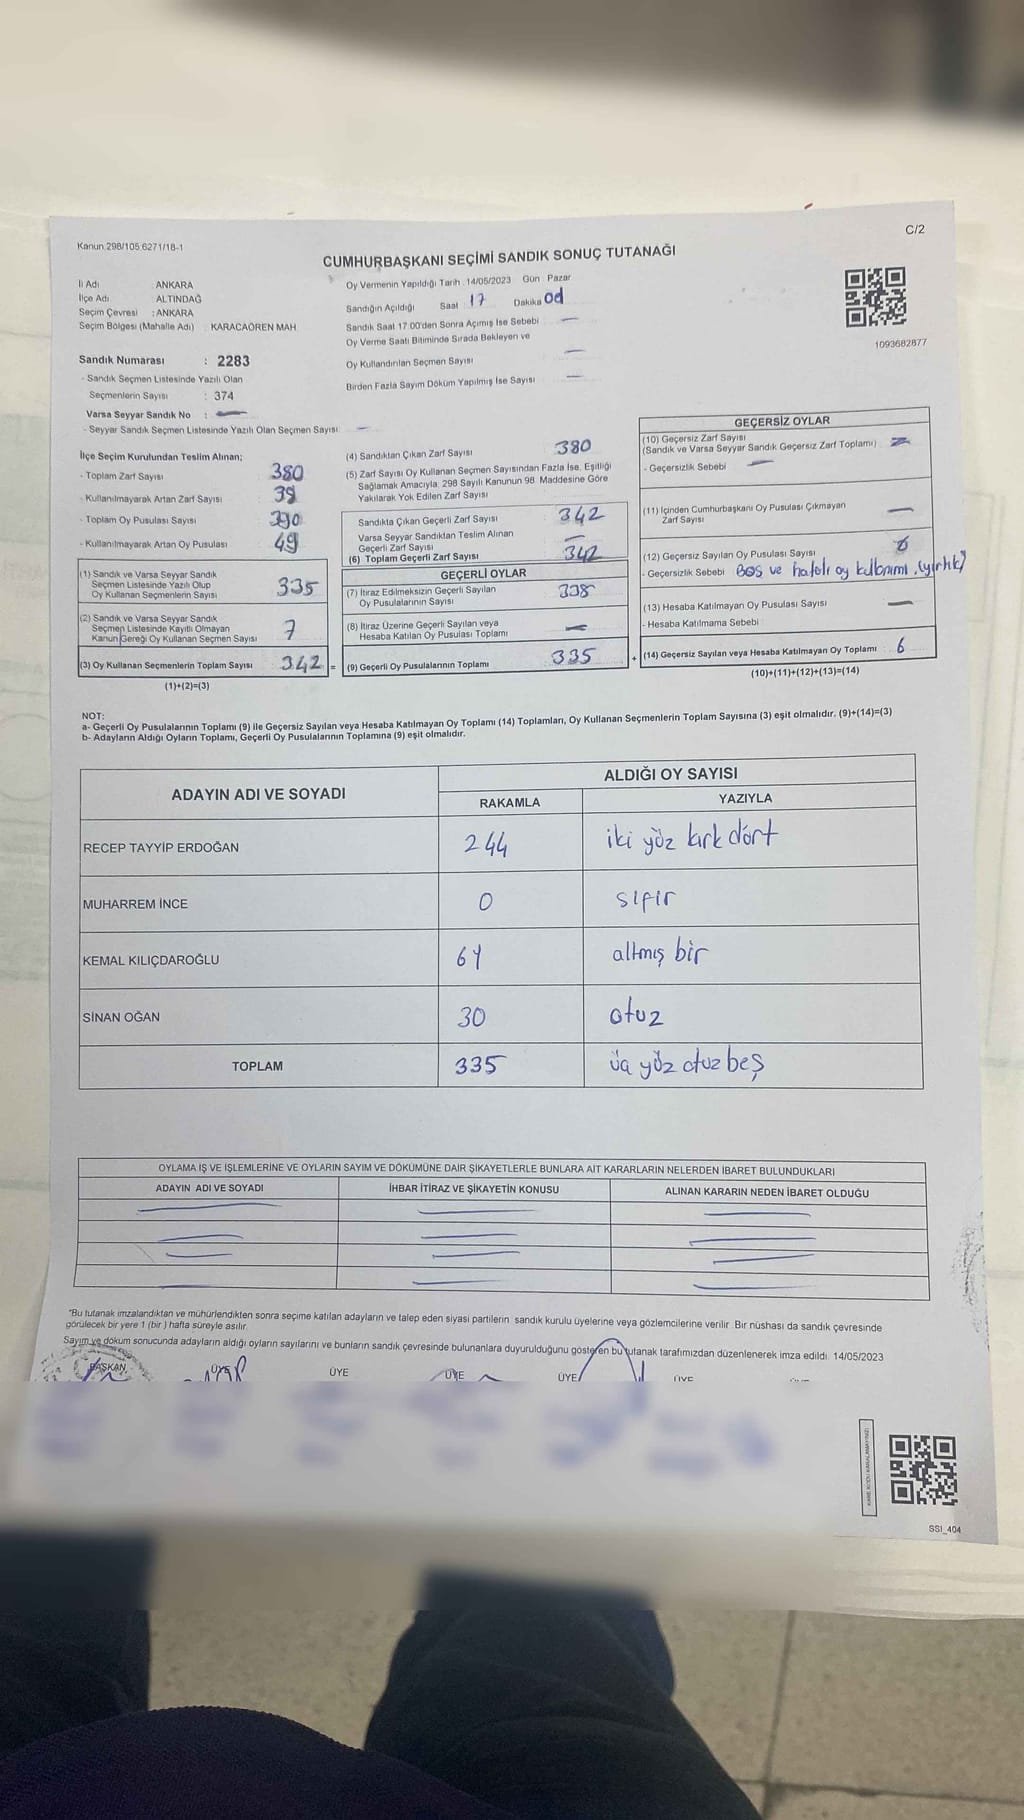 Kanun 298/105,6271/18-1
C/2
CUMHURBAŞKANI SEÇİMİ SANDIK SONUÇ TUTANAĞI
İl Adı ANKARA
İlçe Adı ALTINDAĞ
Seçim Çevresi : ANKARA
Seçim Bölgesi (Mahalle Adı) KARACAÖREN MAH.
Oy Vermenin Yapıldığı Tarih 14/05/2023 Gün Pazar
Sandığın Açıldığı Saat 17 Dakika
Sandık Saat 17.00'den Sonra Açımış İse Sebebi —
Oy Verme Saati Bitiminde Sırada Bekleyen ve
Oy Kullandırılan Seçmen Sayısı —
Birden Fazla Sayım Döküm Yapılmış İse Sayısı —
1093682877
Sandık Numarası : 2283
- Sandık Seçmen Listesinde Yazılı Olan
Seçmenlerin Sayısı : 374
Varsa Seyyar Sandık No : —
- Seyyar Sandık Seçmen Listesinde Yazılı Olan Seçmen Sayısı: —
İlçe Seçim Kurulundan Teslim Alınan;
- Toplam Zarf Sayısı 380
- Kullanılmayarak Artan Zarf Sayısı 39
- Toplam Oy Pusulası Sayısı
- Kullanılmayarak Artan Oy Pusulası 49
(1) Sandık ve Varsa Seyyar Sandık
Seçmen Listesinde Yazılı Olup
Oy Kullanan Seçmenlerin Sayısı 335
(2) Sandık ve Varsa Seyyar Sandık
Seçmen Listesinde Kayıtlı Olmayan
Kanun Gereği Oy Kullanan Seçmen Sayısı 7
(3) Oy Kullanan Seçmenlerin Toplam Sayısı 342 =
(1)+(2)=(3)
(4) Sandıktan Çıkan Zarf Sayısı 380
(5) Zarf Sayısı Oy Kullanan Seçmen Sayısından Fazla İse, Eşitliği
Sağlamak Amacıyla, 298 Sayılı Kanunun 98. Maddesine Göre
Yakılarak Yok Edilen Zarf Sayısı
Sandıkta Çıkan Geçerli Zarf Sayısı 342
Varsa Seyyar Sandıktan Teslim Alınan
Geçerli Zarf Sayısı —
(6) Toplam Geçerli Zarf Sayısı 342
GEÇERLİ OYLAR
(7) İtiraz Edilmeksizin Geçerli Sayılan
Oy Pusulalarının Sayısı
(8) İtiraz Üzerine Geçerli Sayılan veya
Hesaba Katılan Oy Pusulası Toplamı —
(9) Geçerli Oy Pusulalarının Toplamı 335 +
GEÇERSİZ OYLAR
(10) Geçersiz Zarf Sayısı
(Sandık ve Varsa Seyyar Sandık Geçersiz Zarf Toplamı)
- Geçersizlik Sebebi —
(11) İçinden Cumhurbaşkanı Oy Pusulası Çıkmayan
Zarf Sayısı —
(12) Geçersiz Sayılan Oy Pusulası Sayısı 6
- Geçersizlik Sebebi Boş ve hatalı oy kullanımı. (yırtık)
(13) Hesaba Katılmayan Oy Pusulası Sayısı —
- Hesaba Katılmama Sebebi
(14) Geçersiz Sayılan veya Hesaba Katılmayan Oy Toplamı 6
(10)+(11)+(12)+(13)=(14)
NOT:
a- Geçerli Oy Pusulalarının Toplamı (9) ile Geçersiz Sayılan veya Hesaba Katılmayan Oy Toplamı (14) Toplamları, Oy Kullanan Seçmenlerin Toplam Sayısına (3) eşit olmalıdır. (9)+(14)=(3)
b- Adayların Aldığı Oyların Toplamı, Geçerli Oy Pusulalarının Toplamına (9) eşit olmalıdır.
ADAYIN ADI VE SOYADI ALDIĞI OY SAYISI
RAKAMLA YAZIYLA
RECEP TAYYİP ERDOĞAN 244 iki yüz kırk dört
MUHARREM İNCE 0 sıfır
KEMAL KILIÇDAROĞLU 61 altmış bir
SİNAN OĞAN 30 otuz
TOPLAM 335 üç yüz otuz beş
OYLAMA İŞ VE İŞLEMLERİNE VE OYLARIN SAYIM VE DÖKÜMÜNE DAİR ŞİKAYETLERLE BUNLARA AİT KARARLARIN NELERDEN İBARET BULUNDUKLARI
ADAYIN ADI VE SOYADI İHBAR İTİRAZ VE ŞİKAYETİN KONUSU ALINAN KARARIN NEDEN İBARET OLDUĞU
"Bu tutanak imzalandıktan ve mühürlendikten sonra seçime katılan adayların ve talep eden siyasi partilerin sandık kurulu üyelerine veya gözlemcilerine verilir. Bir nüshası da sandık çevresinde
görülecek bir yere 1 (bir ) hafta süreyle asılır.
Sayım ve döküm sonucunda adayların aldığı oyların sayılarını ve bunların sandık çevresinde bulunanlara duyurulduğunu gösteren bu tutanak tarafımızdan düzenlenerek imza edildi. 14/05/2023
BAŞKAN ÜYE ÜYE ÜYE ÜYE ÜYE
SSI_404